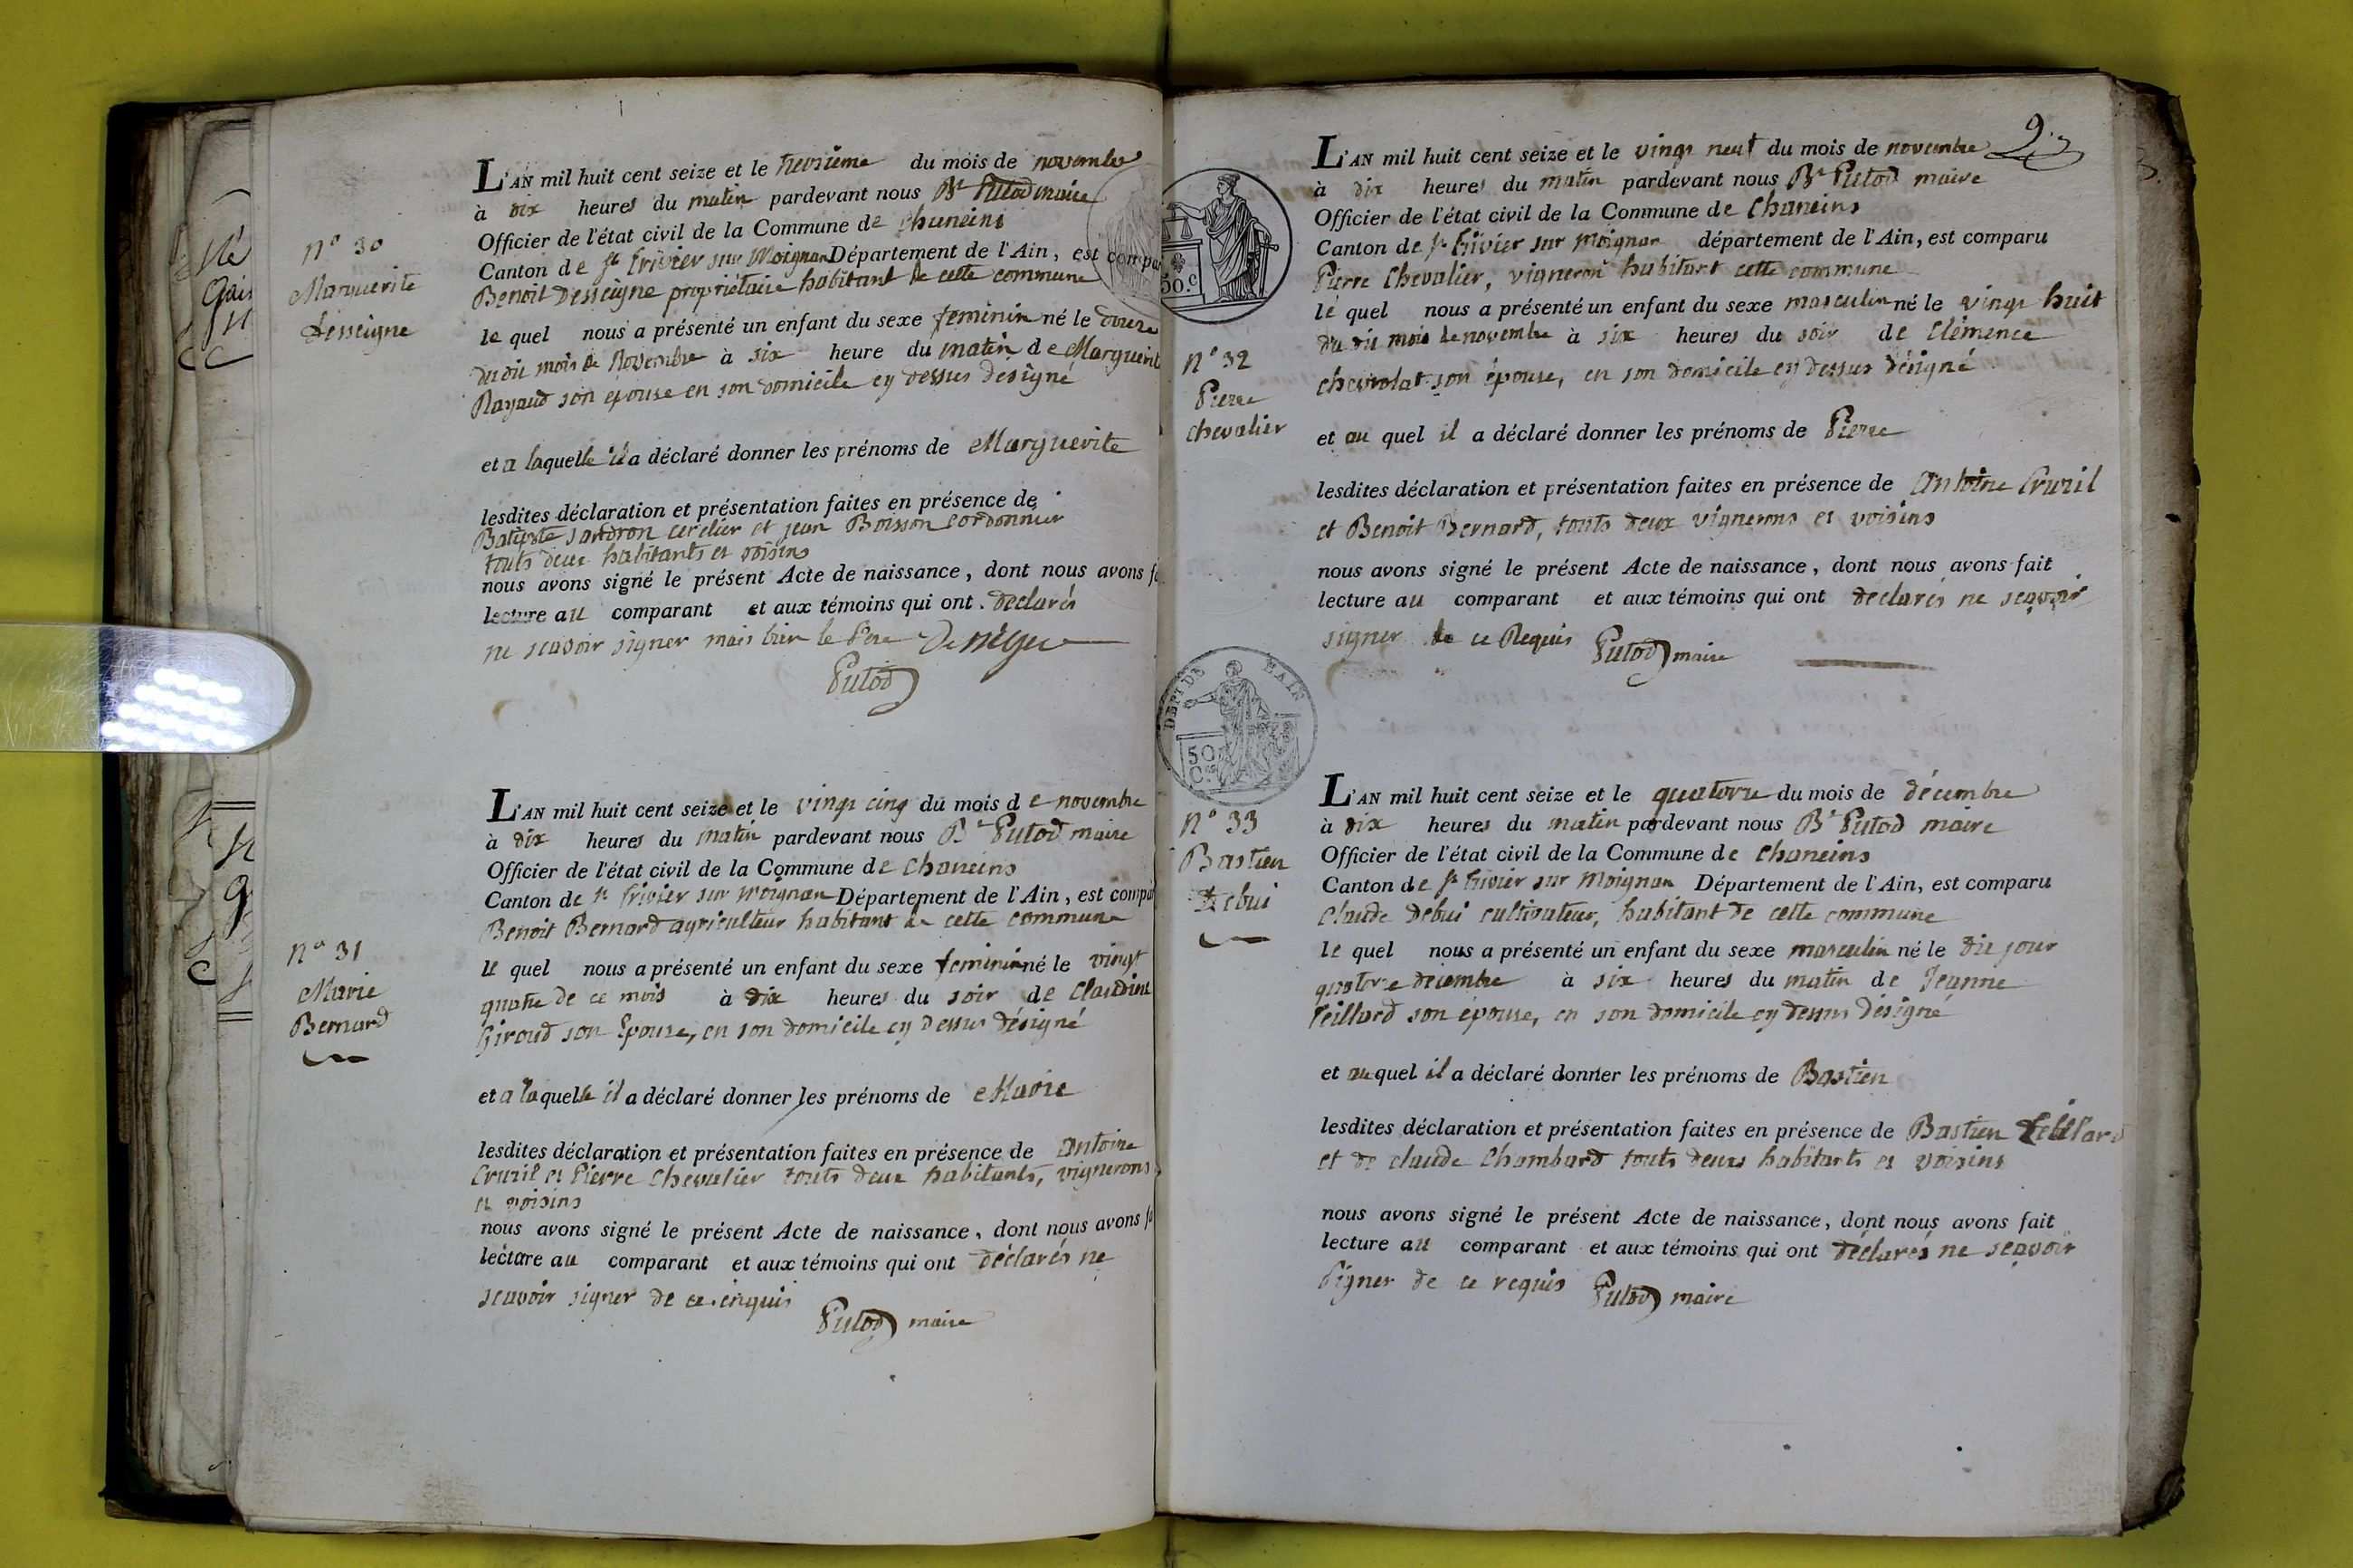 N° 30
Marguerite
desseigne
L'AN mil huit cent seize et le treisième du mois de novembre
à dix heures du matin pardevant nous Bt Putod maire
Officier de l'état civil de la Commune de Chaneins
Canton de St trivier sur Moignan Département de l'Ain, est compa
Benoit Desseigne propriétaire habitant de cette commune
le quel nous a présenté un enfant du sexe feminin né le douze
du dit mois de Novembre à six heure du matin de Marguerit
Rayaud son épouse en son domicile cy dessus designé
et a laquelle il a déclaré donner les prénoms de Marguerite
lesdites déclaration et présentation faites en présence de
Batiste sandron cerclier et jean Boisson cordonnier
touts deux habitants et voisins
nous avons signé le présent Acte de naissance, dont nous avons f
lecture au comparant et aux témoins qui ont declarés
ne scavoir signer mais bien le Pere
Putod
N° 31
Marie
Bernard
L'AN mil huit cent seize et le vingt cinq du mois de novembre
à dix heures du matin pardevant nous Bt Putod maire
Officier de l'état civil de la Commune de Chaneins
Canton de St trivier sur Moignan Département de l'Ain, est compa
Benoit Bernard agriculteur habitant de cette commune
le quel nous a présenté un enfant du sexe feminin né le vingt
quatre de ce mois à dix heures du soir de Claudine
Giroud son Epouse, en son domicile cy dessus désigné
et a laquelle il a déclaré donner les prénoms de Marie
lesdites déclaration et présentation faites en présence de antoine
Cruzil et Pierre Chevalier touts deux habitants, vignerons
et voisins
nous avons signé le présent Acte de naissance, dont nous avons f
lecture au comparant et aux témoins qui ont déclarés ne
scavoir signer de ce enquis
Putod maire
50.c
DEPT DE L'AIN
50
Ces
N° 32
Pierre
chevalier
L'AN mil huit cent seize et le vingt neuf du mois de novembre
à dix heures du matin pardevant nous Bt Putod maire
Officier de l'état civil de la Commune de Chaneins
Canton de St trivier sur Moignan département de l'Ain, est comparu
Pierre Chevalier, vigneron habitant cette commune
le quel nous a présenté un enfant du sexe masculin né le vingt huit
du dit mois de novembre à six heures du soir de Clémence
chevrolat son épouse, en son domicile cy dessus désigné
et au quel il a déclaré donner les prénoms de Pierre
lesdites déclaration et présentation faites en présence de Antoine Cruzil
et Benoit Bernard, touts deux vignerons et voisins
nous avons signé le présent Acte de naissance, dont nous avons fait
lecture au comparant et aux témoins qui ont declarés ne scavoir
signer de ce Requis Putod maire
N° 33
Bastien
Debui
L'AN mil huit cent seize et le quatorze du mois de décembre
à dix heures du matin pardevant nous Bt Putod maire
Officier de l'état civil de la Commune de Chaneins
Canton de St trivier sur Moignan Département de l'Ain, est comparu
Claude debui cultivateur, habitant de cette commune
le quel nous a présenté un enfant du sexe masculin né le dit jour
quatorze decembre à six heures du matin de Jeanne
teillard son épouse, en son domicile cy dessus désigné
et au quel il a déclaré donner les prénoms de Bastien
lesdites déclaration et présentation faites en présence de Bastien
et de claude Chambard touts deux habitants et voisins
nous avons signé le présent Acte de naissance, dont nous avons fait
lecture au comparant et aux témoins qui ont déclarés ne scavoir
signer de ce requis Putod maire